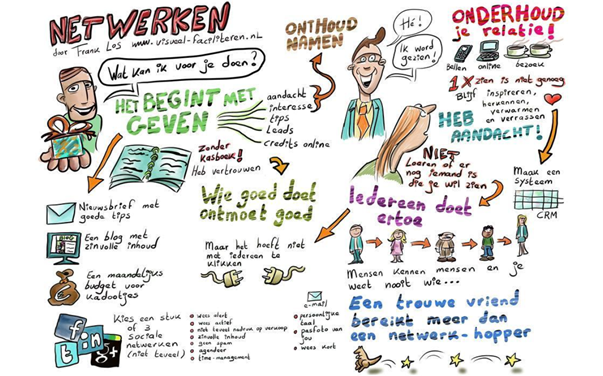 NETWERKEN
door Frank Los www.visueel-faciliteren.nl
Wat kan ik voor je doen?
HET BEGINT MET
GEVEN
aandacht
interesse
tips
Leads
credits online
ONTHOUD
NAMEN
Hé!
Ik word
gezien!
ONDERHOUD
je relatie!
Bellen online bezoek
1X zien is niet genoeg
Blijf inspireren,
herkennen,
verwarmen
en verrassen
HEB
AANDACHT!
zonder
kasboek!
Heb vertrouwen
NIET
Loeren of er
nog iemand is
die je wil zien
Maak een
systeem
CRM
Nieuwsbrief met
goede tips
Een blog met
zinvolle inhoud
Een maandelijks
budget voor
kadootjes
Wie goed doet
ontmoet goed
Maar het hoeft niet
met iedereen te
klikken
Iedereen doet
ertoe
Mensen kennen mensen en je
weet nooit wie...
f in
t g+
Kies een stuk
of 3
sociale
netwerken
(niet teveel)
wees alert
wees actief
niet teveel nadruk op verkoop
zinvolle inhoud
geen spam
agendeer
time-management
e-mail
persoonlijke
taal
pasfoto van
jou
wees kort
Een trouwe vriend
bereikt meer dan
een netwerk-hopper